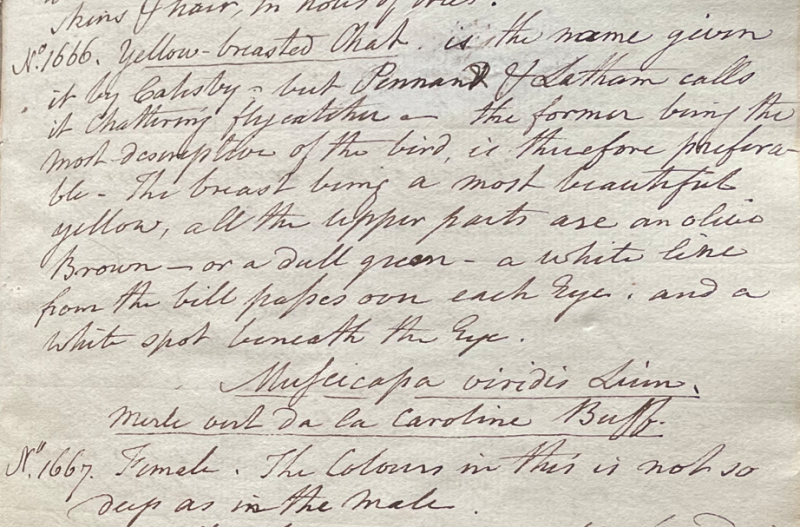 skins & hair, in holes of trees.
No. 1666. Yellow-breasted Chat is the name given
it by Catesby - but Pennant & Latham calls
it Chattering flycatcher - the former being the
most descriptive of the bird, is therefore prefera-
ble - The breast being a most beautiful
yellow, all the upper parts are an olive
Brown - or a dull green - a white line
from the bill passes over each Eye. and a
white spot beneath the Eye.
Muscicapa viridis Linn.
Merle vert da la Caroline Buff.
No. 1667. Female. The Colours in this is not so
deep as in the male.